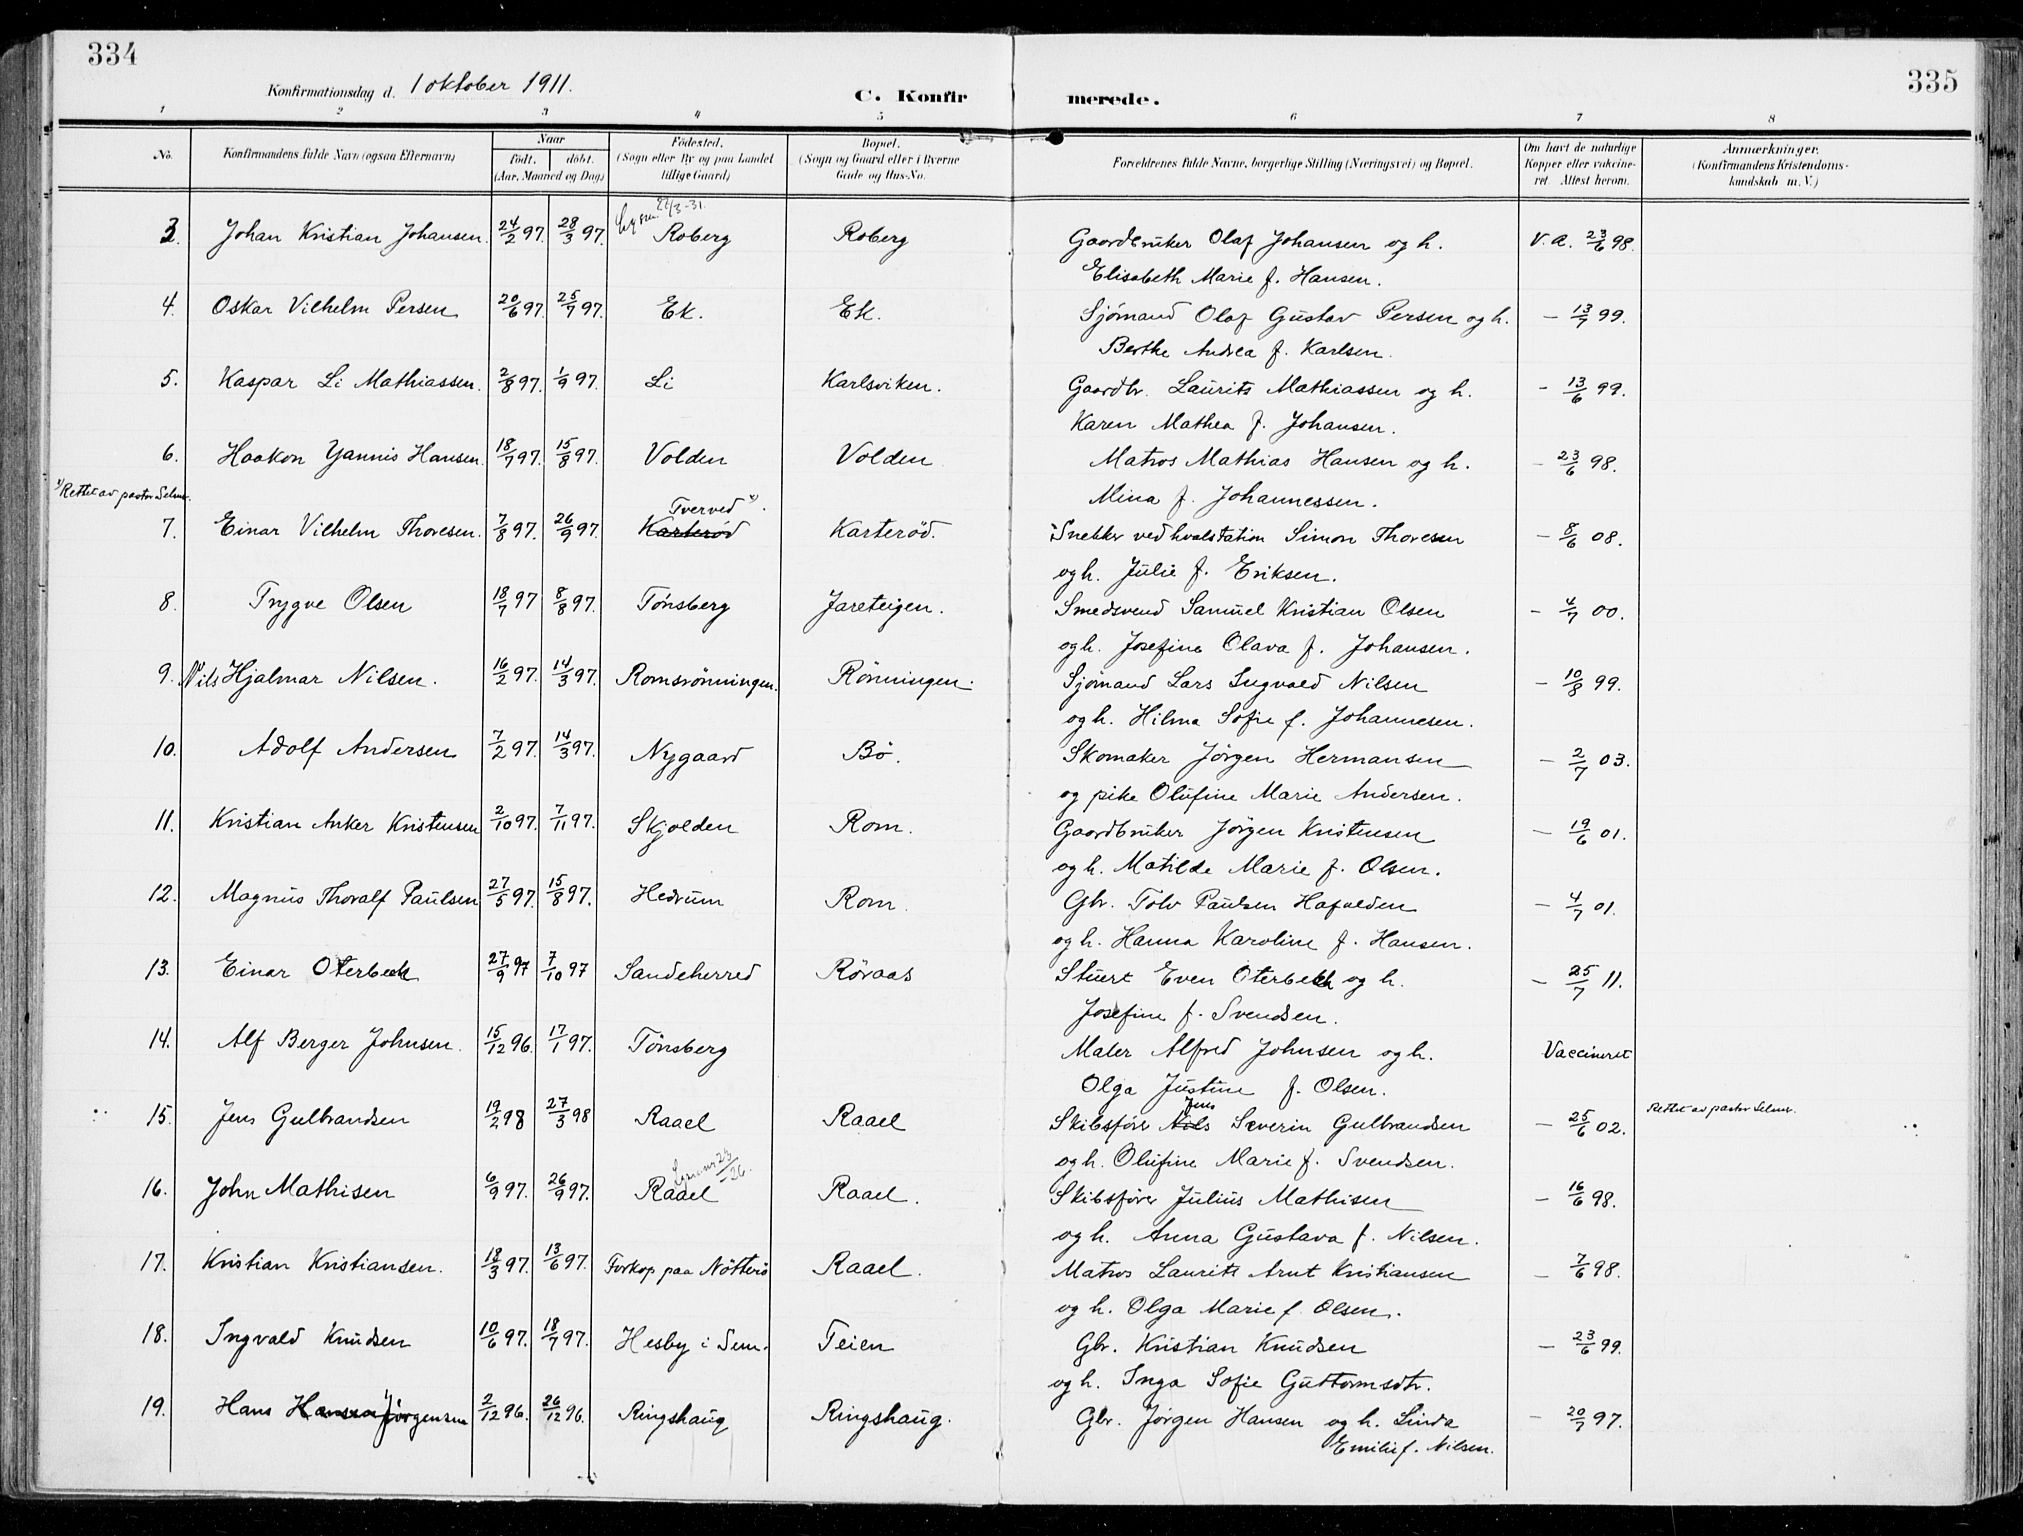 334
335
Konfirmationsdag d. 1 oktober 1911.
C. Konfirmerede.
1 2 3 4 5 6 7 8
No. Konfirmandens fulde Navn (ogsaa Efternavn) Naar født. døbt. (Aar, Maaned og Dag) Fødested. (Sogn eller By og paa Landet tillige Gaard) Bopæl. (Sogn og Gaard eller i Byerne Gade og Hus-No. Forældrenes fulde Navne, borgerlige Stilling (Næringsvei) og Bopæl. Om havt de naturlige Kopper eller vaccineret. Attest herom. Anmærkninger. (Konfirmandens Kristendomskundskab m. V.)
22/3-31.
3. Johan Kristian Johansen. 24/2 97. 28/3 97. Roberg Roberg Gaardbruker Olaf Johansen og h. V. a. 23/6 98.
Elisabeth Marie f. Hansen.
4. Oskar Vilhelm Persen 20/6 97. 25/7 97. Ek. Ek. Sjømand Olaf Gustav Persen og h. – 13/7 99.
Berthe Andrea f. Karlsen.
5. Kaspar Li Mathiassen. 2/8 97. 1/9 97. Li Karlsviken. Gaardbr. Laurits Mathiassen og h. – 13/6 99.
Karen Mathea f. Johansen.
6. Haakon Yannis Hansen. 18/7 97. 15/8 97. Volden Volden Matros Mathias Hansen og h. – 23/6 98.
x) Rettet av pastor Selmer. Mina f. Johannessen.
Tverved x).
7. Einar Vilhelm Thoresen. 7/8 97. 26/9 97. Karterød Karterød. Snekker ved hvalstation Simon Thoresen – 8/6 08.
og h. Julie f. Eriksen.
8. Trygve Olsen 18/7 97 8/8 97. Tønsberg Jareteigen. Smedsvend Samuel Kristian Olsen – 4/7 00.
og h. Josefine Olava f. Johansen.
9. Nils Hjalmar Nilsen. 16/2 97. 14/3 97. Romsrønningen. Rønningen. Sjømand Lars Ingvald Nilsen – 10/8 99.
og h. Hilma Sofie f. Johannesen.
10. Adolf Andersen 7/2 97. 14/3 97. Nygaard Bø. Skomaker Jørgen Hermansen – 2/7 03.
og pike Olufine Marie Andersen.
11. Kristian Anker Kristensen 2/10 97. 7/11 97. Skjolden Rom. Gaardbruker Jørgen Kristensen – 19/6 01.
og h. Matilde Marie f. Olsen.
12. Magnus Thoralf Paulsen 27/5 97. 15/8 97. Hedrum Rom. Gbr. Tolv Paulsen Hafalden – 4/7 01.
og h. Hanna Karoline f. Hansen.
13. Einar Oterbech 27/9 97 7/10 97 Sandeherred Røraas Stuert Even Oterbech og h. – 25/7 11.
Josefine f. Svendsen.
14. Alf Berger Johnsen. 15/12 96. 17/1 97. Tønsberg Maler Alfred Johnsen og h. Vaccineret
Olga Justine f. Olsen.
15. Jens Gulbrandsen 19/2 98 27/3 98 Raael Raael Skibsfører Nils Jens Severin Gulbrandsen – 25/6 02. Rettet av pastor Selmer.
og h. Olufine Marie f. Svendsen.
16. John Mathisen 6/9 97. 26/9 97. Raael Raael. Skibsfører Julius Mathisen – 16/6 98.
og h. Anna Gustava f. Nilsen.
17. Kristian Kristiansen. 18/3 97. 13/6 97. Forkop paa Nøtterø Raael. Matros Laurits Arnt Kristiansen – 7/6 98.
og h. Olga Marie f. Olsen.
18. Ingvald Knudsen 10/6 97. 18/7 97. Hesby i Sem. Teien Gbr. Kristian Knudsen – 23/6 99.
og h. Inga Sofie Guttormsdtr.
19. Hans Hansen Jørgensen 2/12 96. 26/12 96. Ringshaug Ringshaug. Gbr. Jørgen Hansen og h. Linda – 20/7 97.
Emilie f. Nilsen.